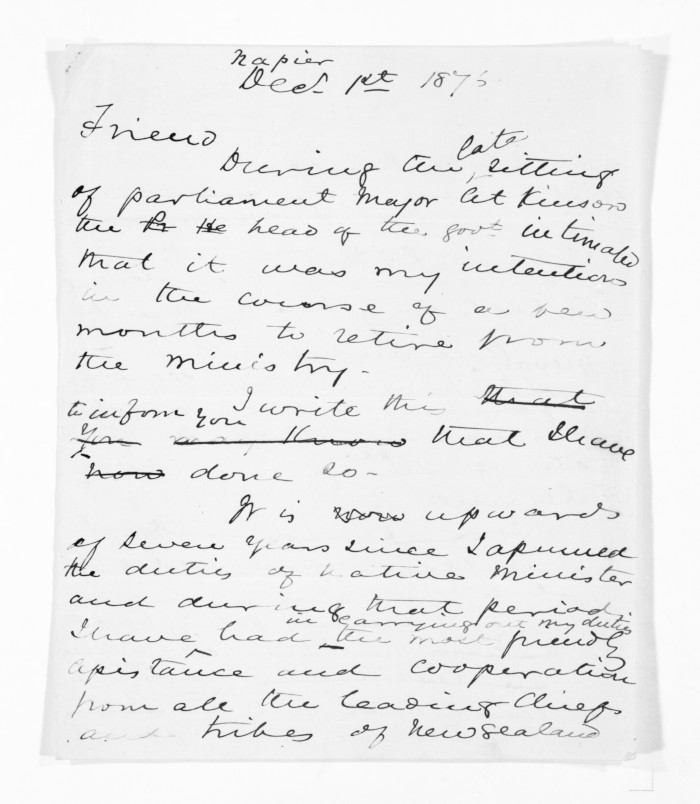 Napier
Decr 1st 1876
Friend
During the late sitting
of parliament Major Atkinson
the Pr He head of the govt intimated
that it was my intention
in the course of a few
months to retire from
the ministry.
I write this that
to inform you
You may know that I have
now done so -
It is now upwards
of seven years since I assumed
the duties of Native Minister
and during that period
in carrying out my duties
I have had the most friendly
assistance and cooperation
from all the leading Chiefs
and tribes of New Zealand